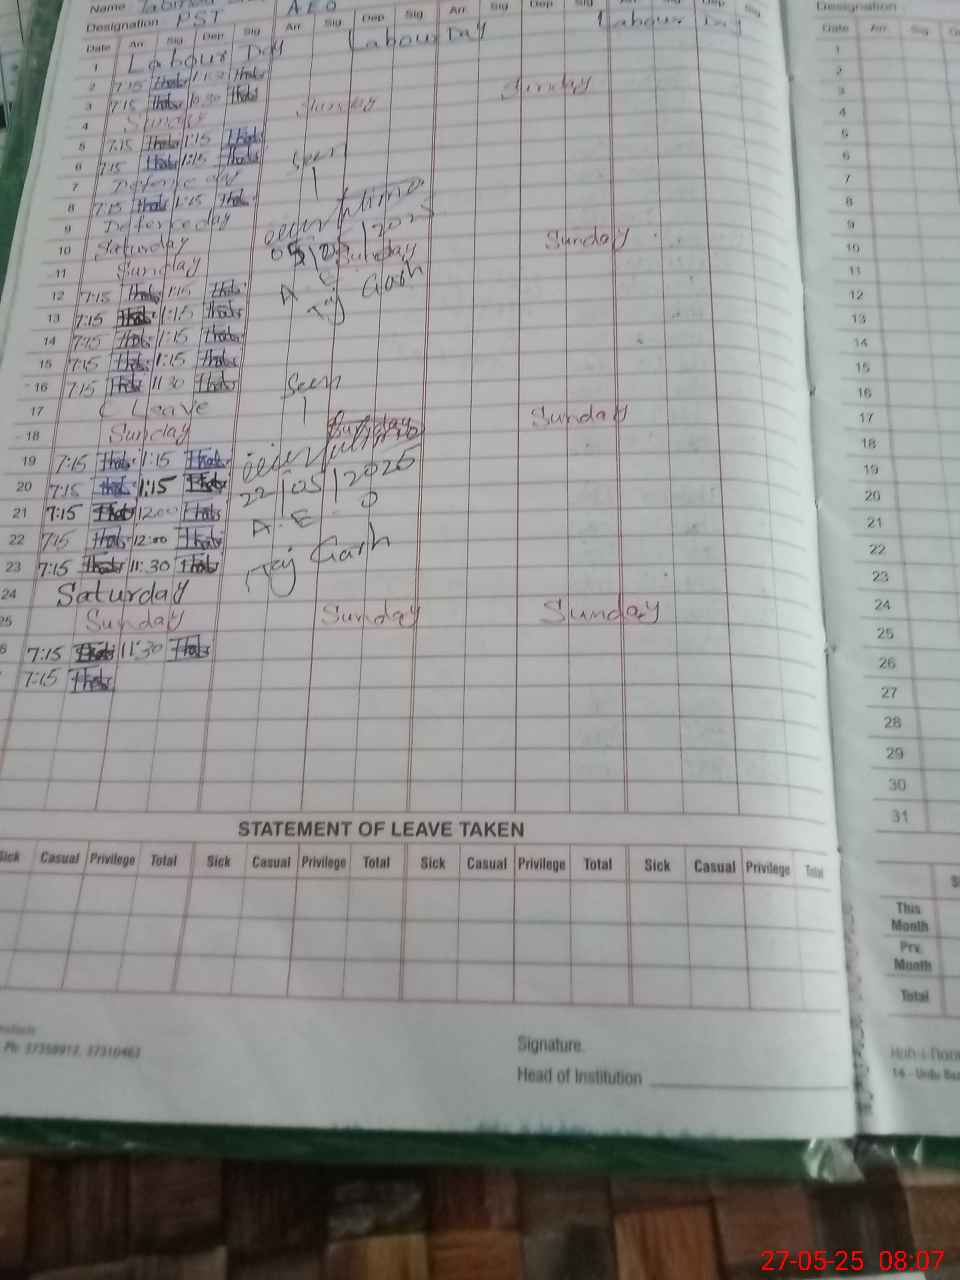 Name
Designation PST AEO Designation
Date Arr Sig Dep Sig Arr Sig Dep Sig Arr Sig Dep Sig Arr Sig Dep Sig Date Arr. Sig
1 Labour Day Labour Day Labour Day 1
2 7:15 11:30 2
3 7:15 10:30 3
4 Sunday Sunday Sunday 4
5 7:15 1:15 5
6 7:15 1:15 Seen 6
7 Defence day 7
8 7:15 1:15 8
9 Defence day 05/05/2025 9
10 Saturday 10
11 Sunday Sunday Sunday 11
12 7:15 1:15 A 12
13 7:15 1:15 Garh 13
14 7:15 1:15 14
15 7:15 1:15 15
16 7:15 11:30 Seen 16
17 C Leave 17
18 Sunday Sunday Sunday 18
19 7:15 1:15 19
20 7:15 1:15 22/05/2025 20
21 7:15 12:00 A.E.O 21
22 7:15 12:00 22
23 7:15 11:30 Taj Garh 23
24 Saturday 24
25 Sunday Sunday Sunday 25
6 7:15 11:30 26
7:15 27
28
29
30
31
STATEMENT OF LEAVE TAKEN
Sick Casual Privilege Total Sick Casual Privilege Total Sick Casual Privilege Total Sick Casual Privilege Total
This Month
Prv. Month
Total
Ph: 37358917, 37310463
Signature.
Head of Institution
27-05-25 08:07